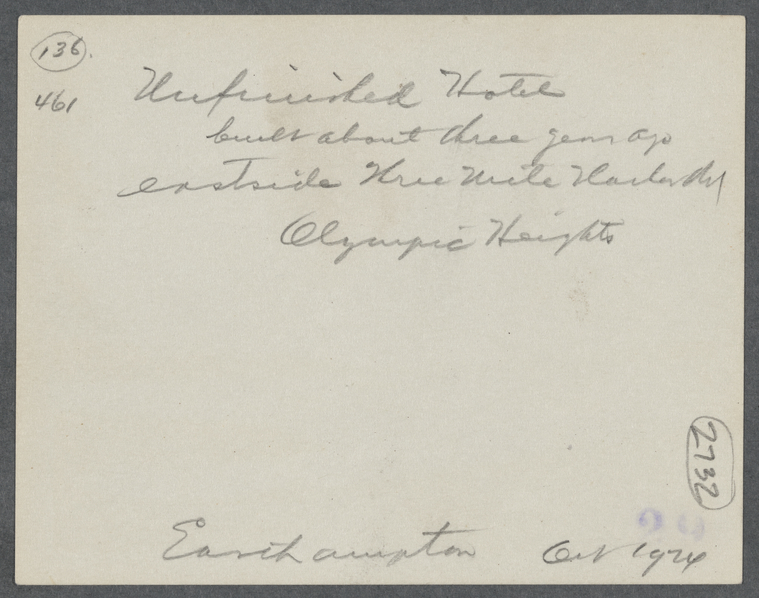 136.
461
Unfinished Hotel
built about three years ago
eastside Three Mile Harbor Rd
Olympic Heights
2732
Easthampton Oct 1924